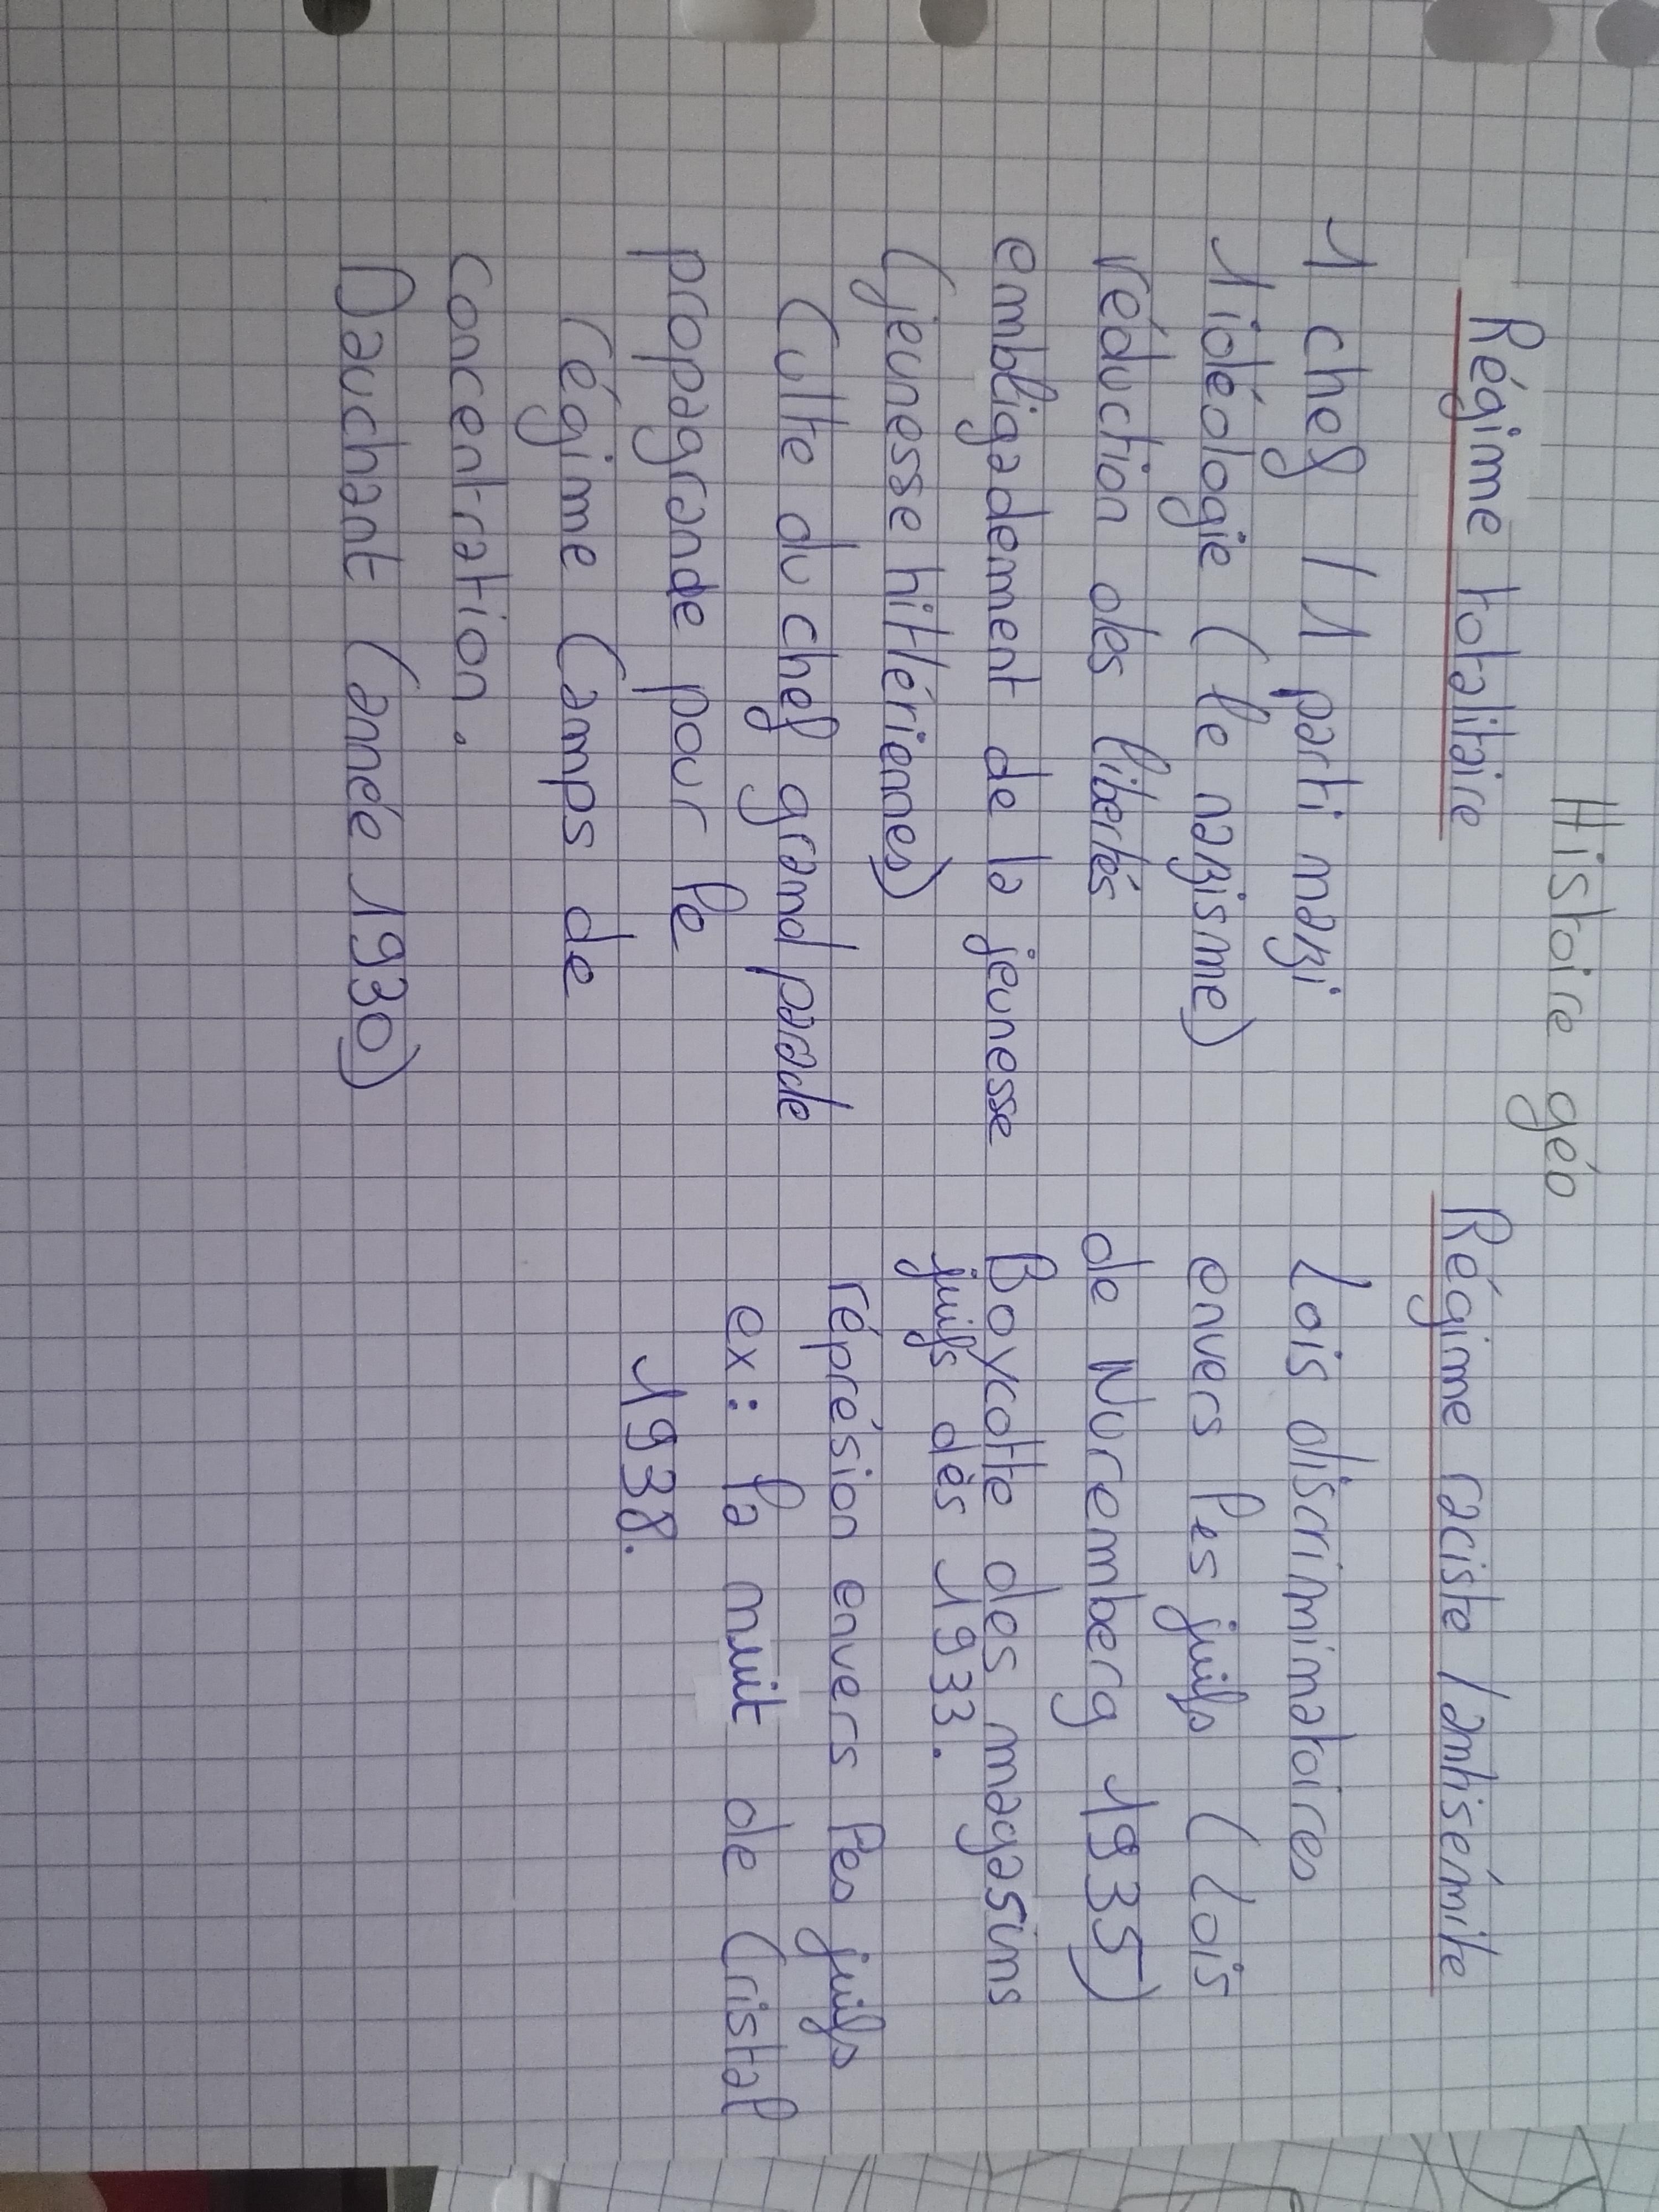 Histoire géo
Régime totalitaire
1 chef / 1 parti nazi
1 idéologie (le nazisme)
réduction des libertés
embligadement de la jeunesse
(jeunesse hitlériennes)
Culte du chef grand parade
propagrande pour le
régime Camps de
concentration.
Dauchant (année 1930)
Régime raciste / antisémite
Lois discriminatoires
envers les juifs (Lois
de Nuremberg 1935)
Boycotte des magasins
juifs dés 1933.
réprésion envers les juifs
ex : la nuit de Cristal
1938.